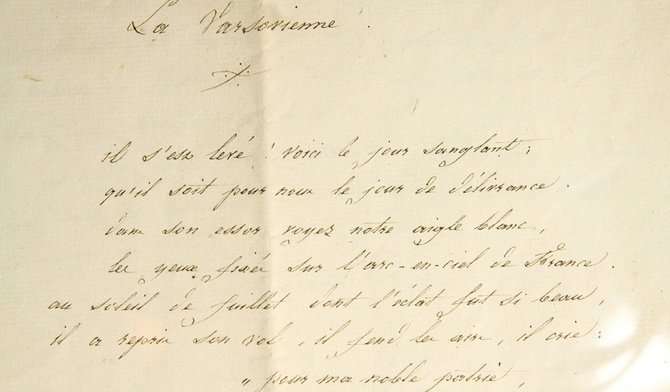 La Varsovienne.
il s'est levé ! voici le jour sanglant ;
qu'il soit pour nous le jour de délivrance.
dans son essor voyez notre aigle blanc,
les yeux fixés sur l'arc-en-ciel de France.
au soleil de Juillet dont l'éclat fut si beau,
il a repris son vol, il fend les airs, il crie :
" pour ma noble patrie,